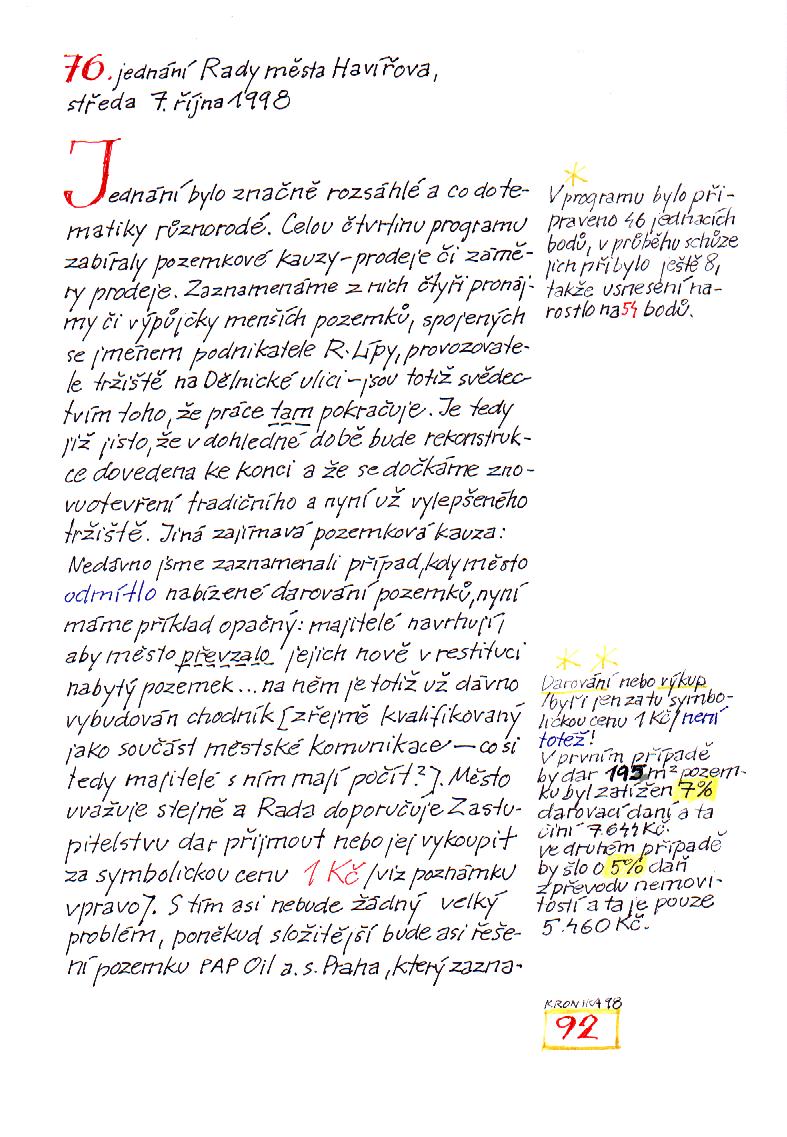 76. jednání Rady města Havířova,
středa 7. října 1998
Jednání bylo značně rozsáhlé a co do te-
matiky různorodé. Celou čtvrtinu programu
zabíraly pozemkové kauzy-prodeje či zámě-
ry prodeje. Zaznamenáme z nich čtyři pronáj-
my či výpůjčky menších pozemků, spojených
se jménem podnikatele R. Lípy, provozovate-
le tržiště na Dělnické ulici - jsou totiž svědec-
tvím toho, že práce tam pokračuje. Je tedy
již jisto, že v dohledné době bude rekonstruk-
ce dovedena ke konci a že se dočkáme zno-
vuotevření tradičního a nyní už vylepšeného
tržiště. Jiná zajímavá pozemková kauza:
Nedávno jsme zaznamenali případ, kdy město
odmítlo nabízené darování pozemků, nyní
máme příklad opačný: majitelé navrhují,
aby město převzalo jejich nově v restituci
nabytý pozemek... na něm je totiž už dávno
vybudován chodník [zřejmě kvalifikovaný
jako součást městské komunikace - co si
tedy majitelé s ním mají počít?]. Město
uvažuje stejně a Rada doporučuje Zastu-
pitelstvu dar přijmout nebo jej vykoupit
za symbolickou cenu 1 Kč /viz poznámku
vpravo]. S tím asi nebude žádný velký
problém, poněkud složitější bude asi řeše-
ní pozemku PAP Oil a.s. Praha, který zazna-
*
V programu bylo při-
praveno 46 jednacích
bodů, v průběhu schůze
jich přibylo ještě 8,
takže usnesení na-
rostlo na 54 bodů.
* *
Darování nebo výkup
/byť i jen za tu symbo-
lickou cenu 1 Kč/ není
totéž!
V prvním případě
by dar 195 m² pozem-
ku byl zatížen 7%
darovací daní a ta
činí 7.644 Kč.
ve druhém případě
by šlo o 5% daň
z převodu nemovi-
tostí a ta je pouze
5.460 Kč.
KRONIKA 98
92